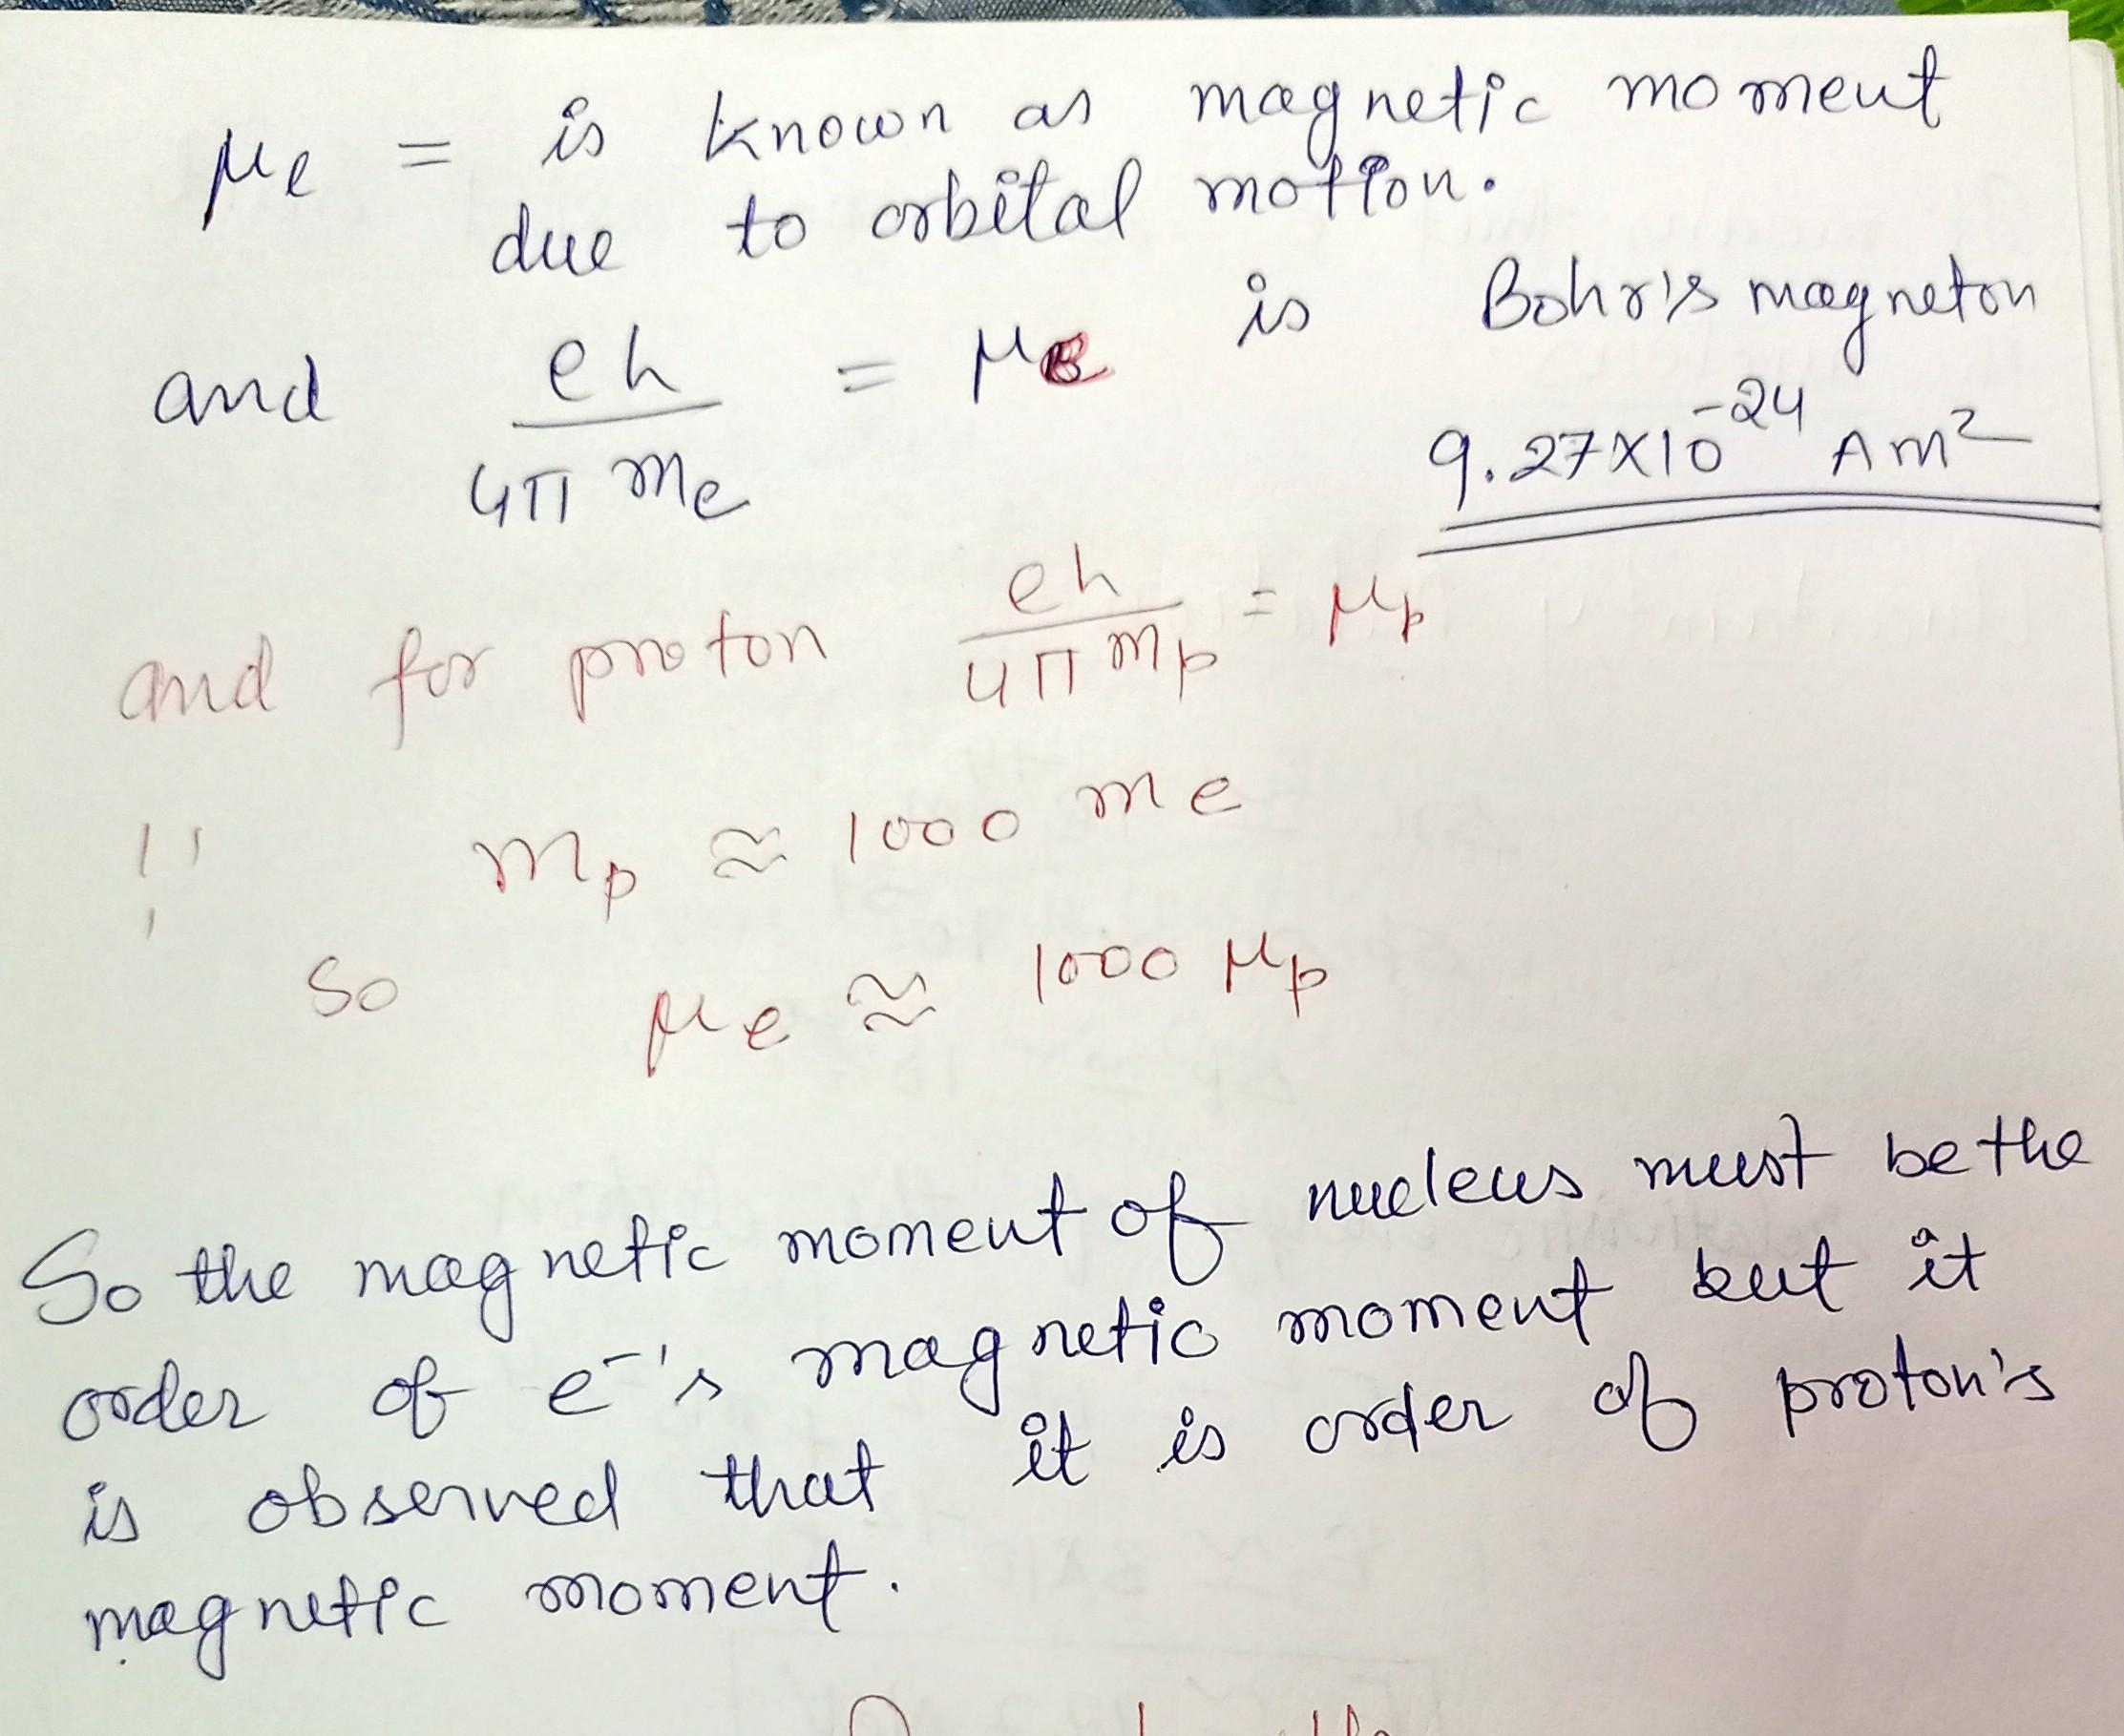 μe = is known as magnetic moment
due to orbital motion.
and eh / 4π me = μB is Bohr's magneton
9.27×10^-24 Am²
and for proton eh / 4π mp = μp
∵ mp ≈ 1000 me
So μe ≈ 1000 μp
So the magnetic moment of nucleus must be the
order of e⁻'s magnetic moment but it
is observed that it is order of proton's
magnetic moment.